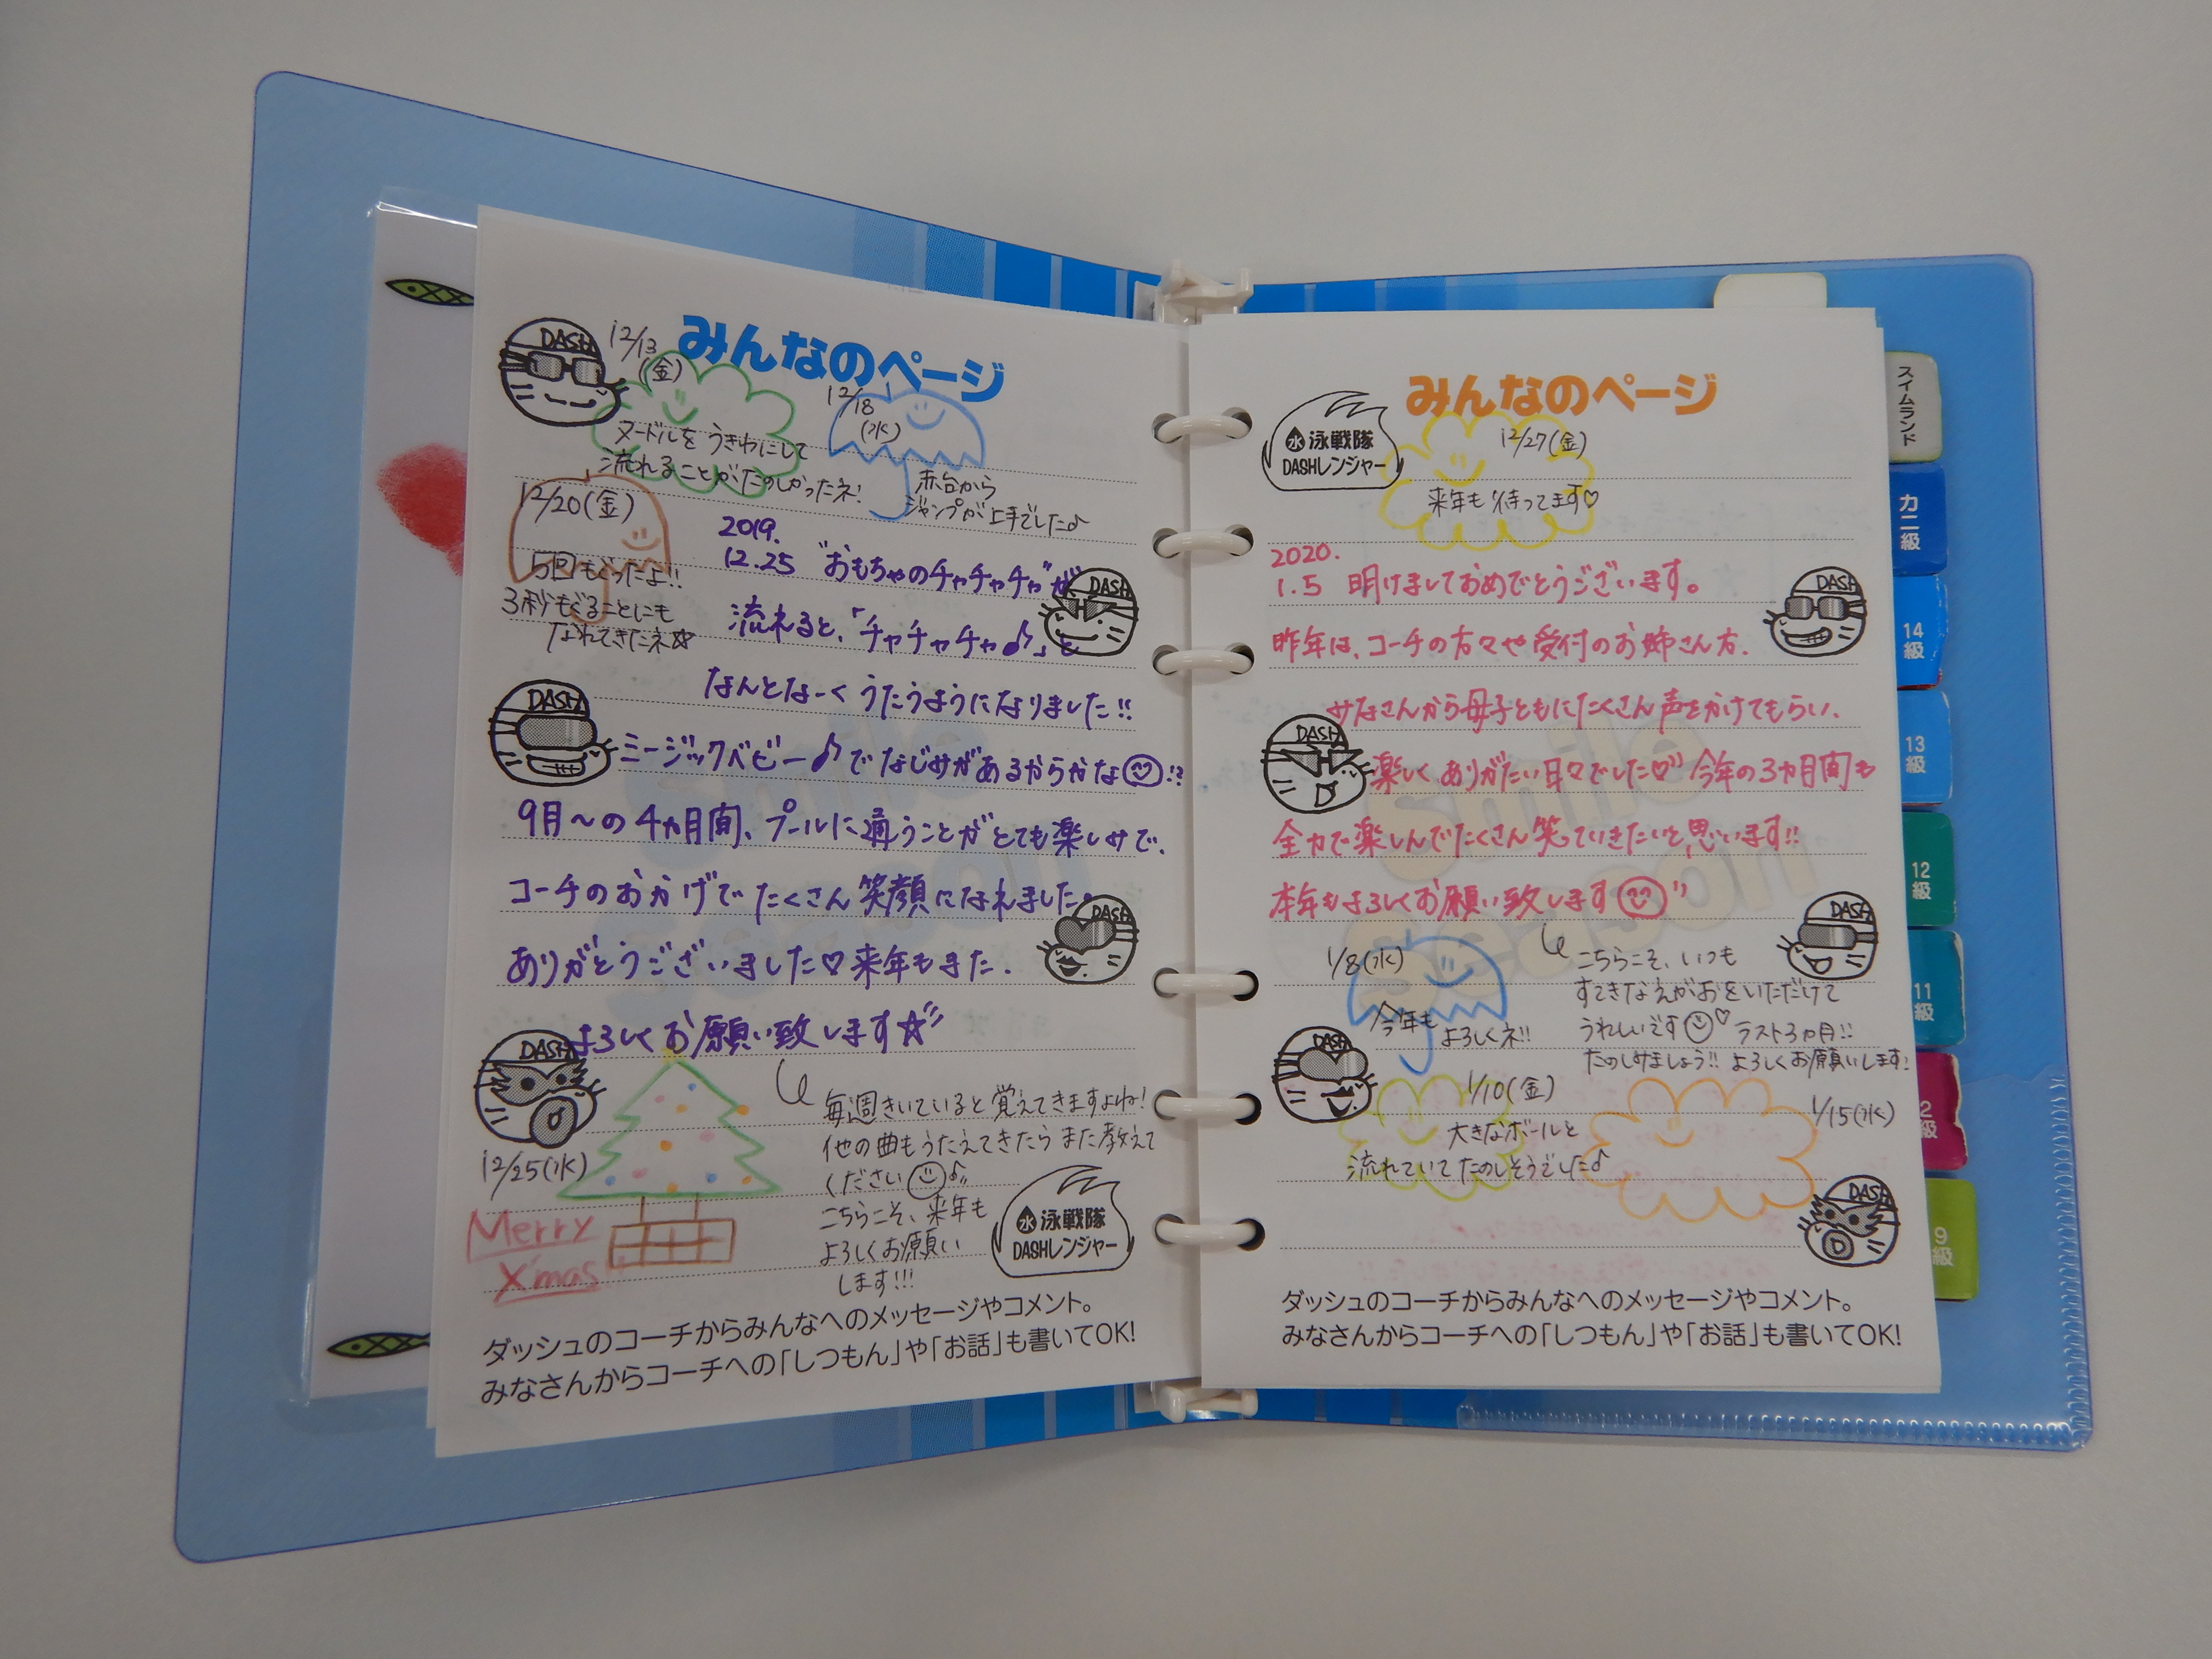 みんなのページ
DASH
12/13
(金)
ヌードルを うきわにして
流れることがたのしかったネ!
12/18
(水)
赤台から
ジャンプが上手でした♪
12/20(金)
5回もぐったよ!!
3秒もぐることにも
なれてきたネ☆
2019.
12.25 "おもちゃのチャチャチャ"が
DASH
流れると、「チャチャチャ♪」と
なんとなーく うたうようになりました!!
DASH
ミージックベビー♪でなじみがあるからかな☺!?
9月〜の4ヵ月間、プールに通うことがとても楽しみで、
コーチのおかげでたくさん笑顔になれました。
DASH
ありがとうございました♡来年もまた、
よろしくお願い致します☆
DASH
毎週きいていると覚えてきますよね!
他の曲もうたえてきたら また教えて
ください☺♪
こちらこそ、来年も
よろしくお願い
します!!!
12/25(水)
Merry
X'mas
水 泳戦隊
DASHレンジャー
ダッシュのコーチからみんなへのメッセージやコメント。
みなさんからコーチへの「しつもん」や「お話」も書いてOK!
みんなのページ
水 泳戦隊
DASHレンジャー
12/27(金)
来年も待ってます♡
2020.
1.5 明けましておめでとうございます。
DASH
昨年は、コーチの方々や受付のお姉さん方、
みなさんから母子ともにたくさん声をかけてもらい、
DASH
楽しく ありがたい日々でした♡ 今年の3ヵ月間も
全力で楽しんでたくさん笑っていきたいと思います!!
本年もよろしくお願い致します☺
DASH
こちらこそ、いつも
すてきなえがおをいただけて
うれしいです☺♡ ラスト3ヵ月!!
たのしみましょう!! よろしくお願いします!
1/8(水)
今年も
よろしくネ!!
DASH
1/10(金)
大きなボールと
流れていて たのしそうでした♪
1/15(水)
DASH
ダッシュのコーチからみんなへのメッセージやコメント。
みなさんからコーチへの「しつもん」や「お話」も書いてOK!
Smile
Season
Smile
Season
スイムランド
カニ級
14級
13級
12級
11級
2級
9級